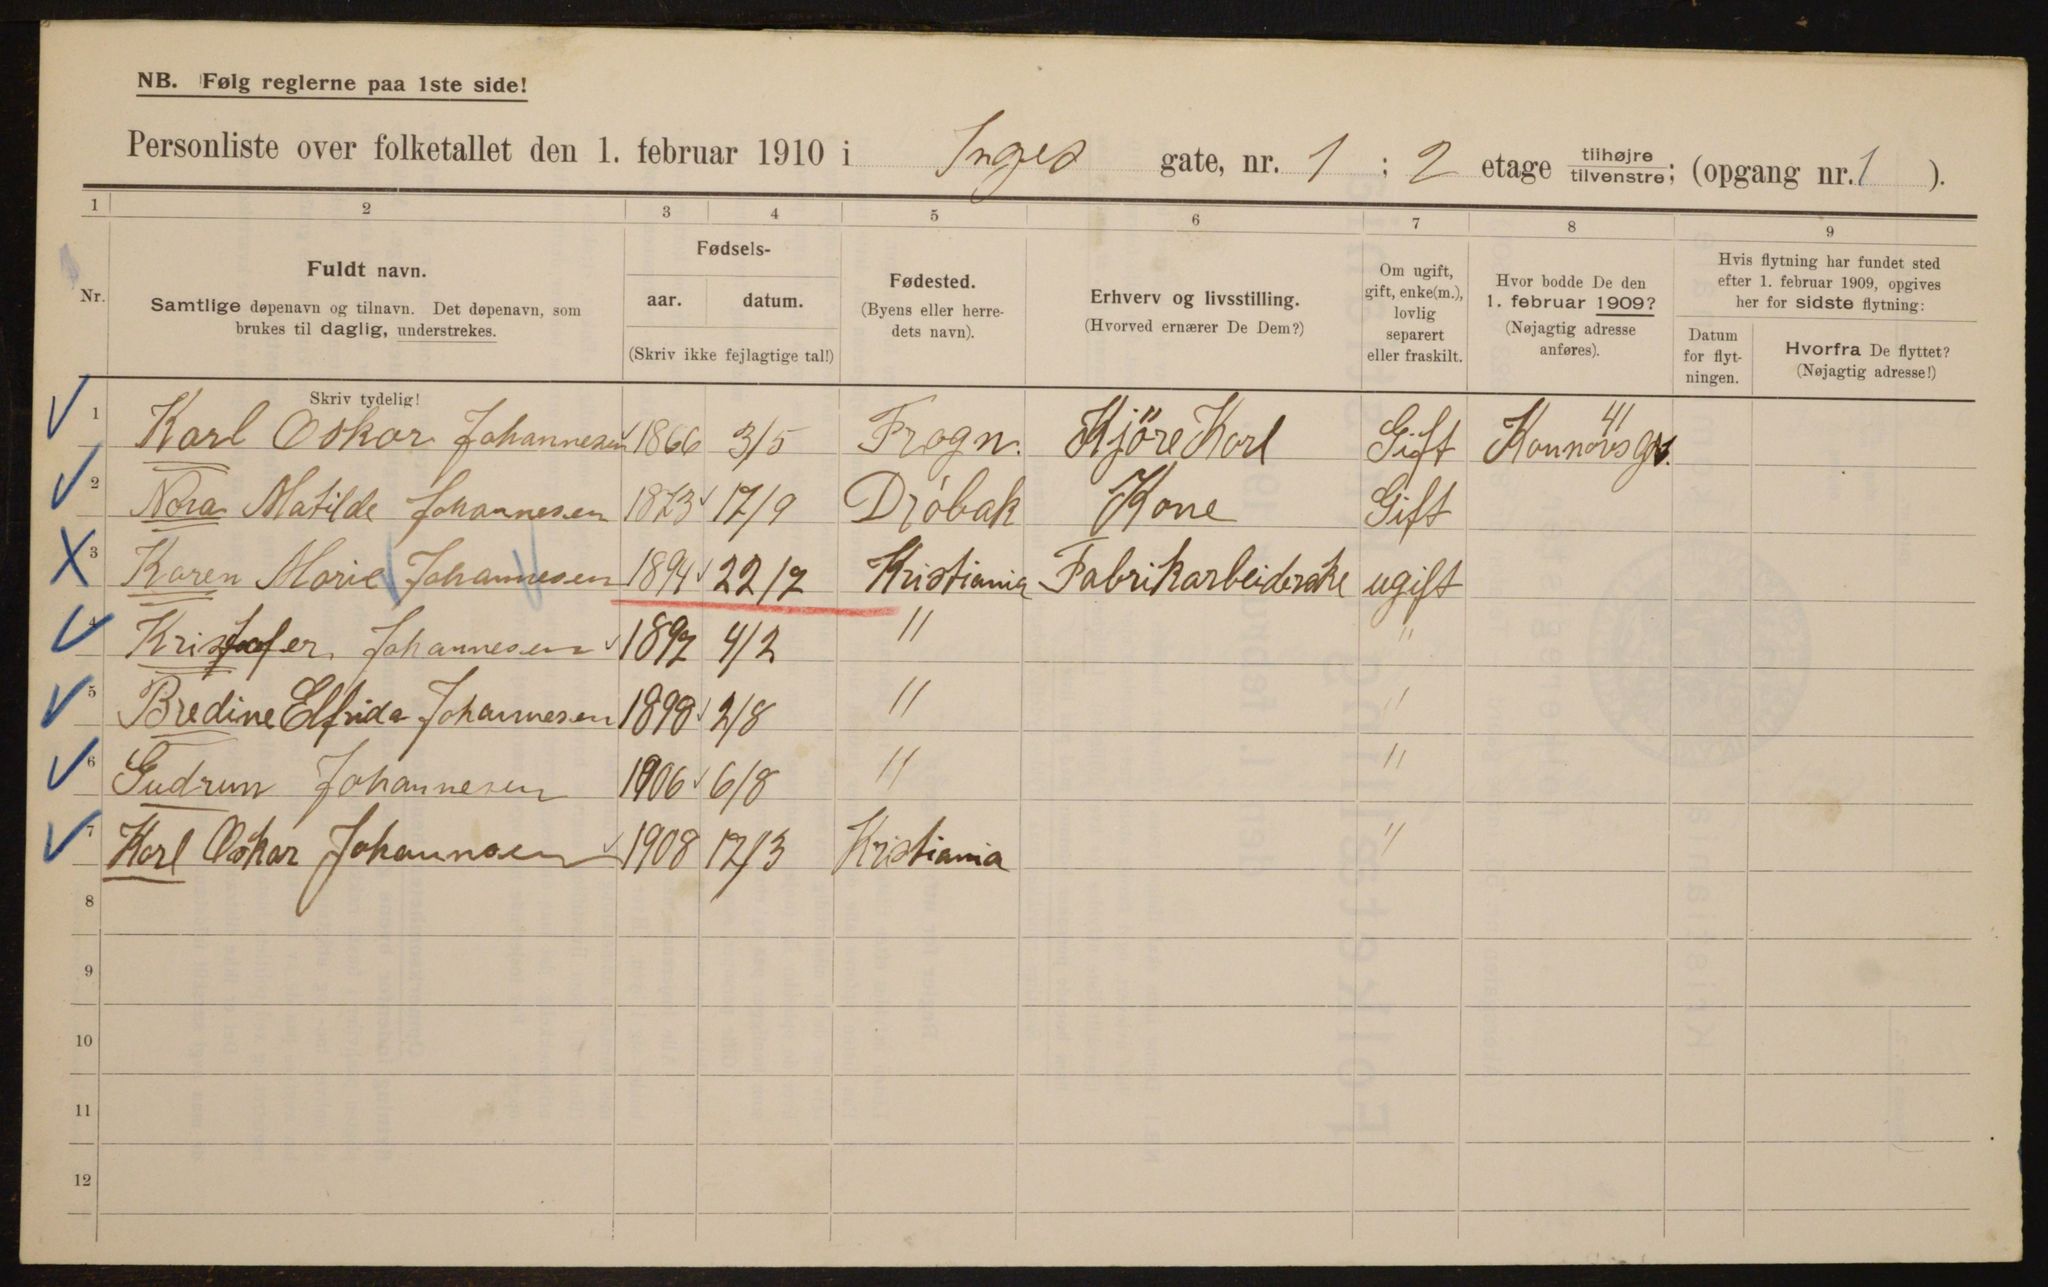 NB. Følg reglerne paa 1ste side!
Personliste over folketallet den 1. februar 1910 i Inges gate, nr. 1 ; 2 etage tilhøjre tilvenstre; (opgang nr. 1 ).
1 2 3 4 5 6 7 8 9
Nr.
Fuldt navn.
Samtlige døpenavn og tilnavn. Det døpenavn, som
brukes til daglig, understrekes.
Fødsels-
aar. datum.
(Skriv ikke fejlagtige tal!)
Fødested.
(Byens eller herre-
dets navn).
Erhverv og livsstilling.
(Hvorved ernærer De Dem?)
Om ugift,
gift, enke(m.),
lovlig
separert
eller fraskilt.
Hvor bodde De den
1. februar 1909?
(Nøjagtig adresse
anføres).
Hvis flytning har fundet sted
efter 1. februar 1909, opgives
her for sidste flytning:
Datum
for flyt-
ningen.
Hvorfra De flyttet?
(Nøjagtig adresse!)
Skriv tydelig!
1 Karl Oskar Johannesen 1866 3/5 Frogn. Kjöre Karl Gift 41
2 Nora Matilde Johannesen 1873 17/9 Dröbak Kone Gift
3 Karen Marie Johannesen 1894 22/7 Kristiania Fabrikarbeiderske ugift
4 Kristofer Johannesen 1897 4/2 " "
5 Bredine Elfrida Johannesen 1898 2/8 " "
6 Gudrun Johannesen 1906 6/8 " "
7 Karl Oskar Johannsen 1908 17/3 Kristiania "
8
9
10
11
12